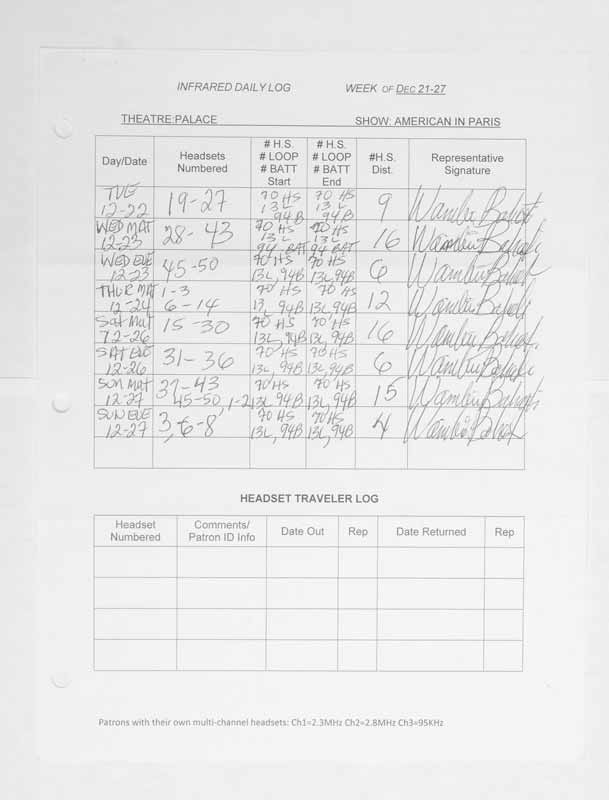 INFRARED DAILY LOG WEEK OF DEC 21-27
THEATRE: PALACE SHOW: AMERICAN IN PARIS
Day/Date Headsets Numbered # H.S. # LOOP # BATT Start # H.S. # LOOP # BATT End #H.S. Dist. Representative Signature
TUE 12-22 19-27 70 HS 13 L 94B 70 HS 13 L 94B 9
WED MAT 12-23 28-43 70 HS 13 L 94 BAT 70 HS 13 L 94 BAT 16
WED EVE 12-23 45-50 70 HS 13L, 94B 70 HS 13L, 94B 6
THUR MAT 12-24 1-3 6-14 70 HS 13L, 94B 70 HS 13L, 94B 12
SAT MAT 12-26 15-30 70 HS 13L, 94B 70 HS 13L, 94B 16
SAT EVE 12-26 31-36 70 HS 13L, 94B 70 HS 13L, 94B 6
SUN MAT 12-27 37-43 45-50, 1-2 70 HS 13L, 94B 70 HS 13L, 94B 15
SUN EVE 12-27 3, 6-8 70 HS 13L, 94B 70 HS 13L, 94B 4
HEADSET TRAVELER LOG
Headset Numbered Comments/ Patron ID Info Date Out Rep Date Returned Rep
Patrons with their own multi-channel headsets: Ch1=2.3MHz Ch2=2.8MHz Ch3=95KHz